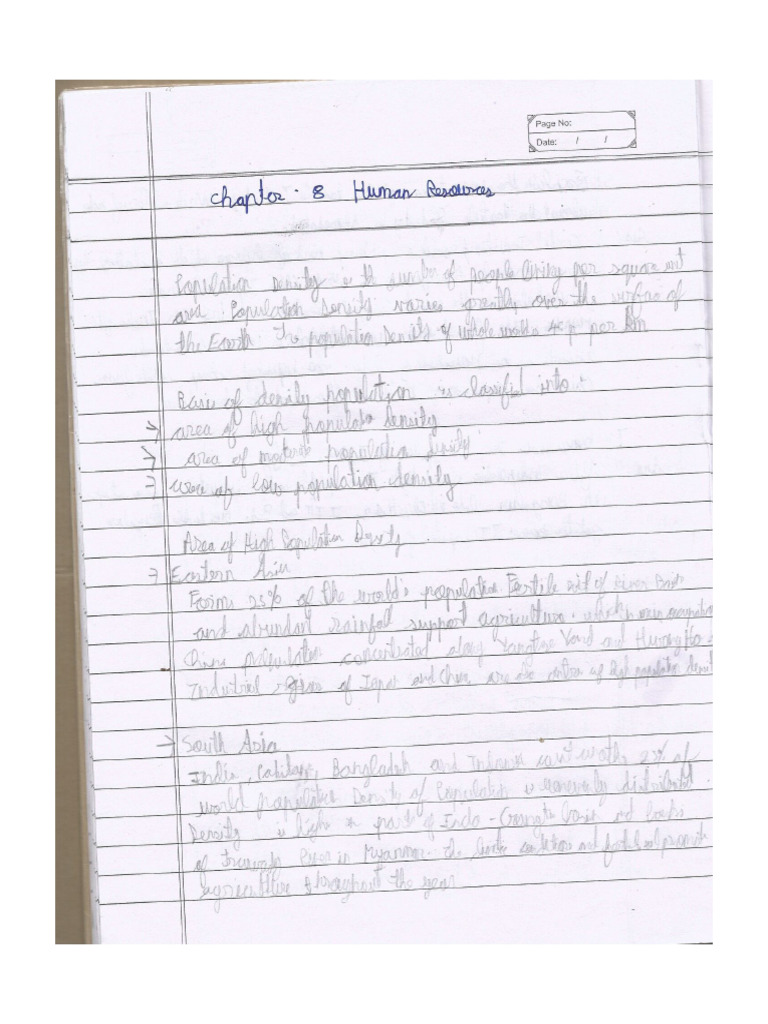 Page No:
Date: / /
Chapter - 8 Human Resources
Population Density is th number of people living per square unit
area. Population Density varies greatly over the surface of
the Earth. The population Density of whole world is per km
Basis of density population is classified into:
→ area of high populato density
→ area of moderate population density
→ area of low population density
Area of High Population Density
→ Eastern Asia
Forms 23% of the world's population Fertile soil of River Basin
and abundant rainfall support agriculture. which main
China population concentrated along Yangtze and Huang Ho
Industrial region of Japan and China are also centre of high population densi
→ South Asia
India, Bangladesh and 23% of
world population Density of Population is unevenly distributed
Density is high part of Indo - Ganga basin
of River in Myanmar. The and
agriculture throughout the year